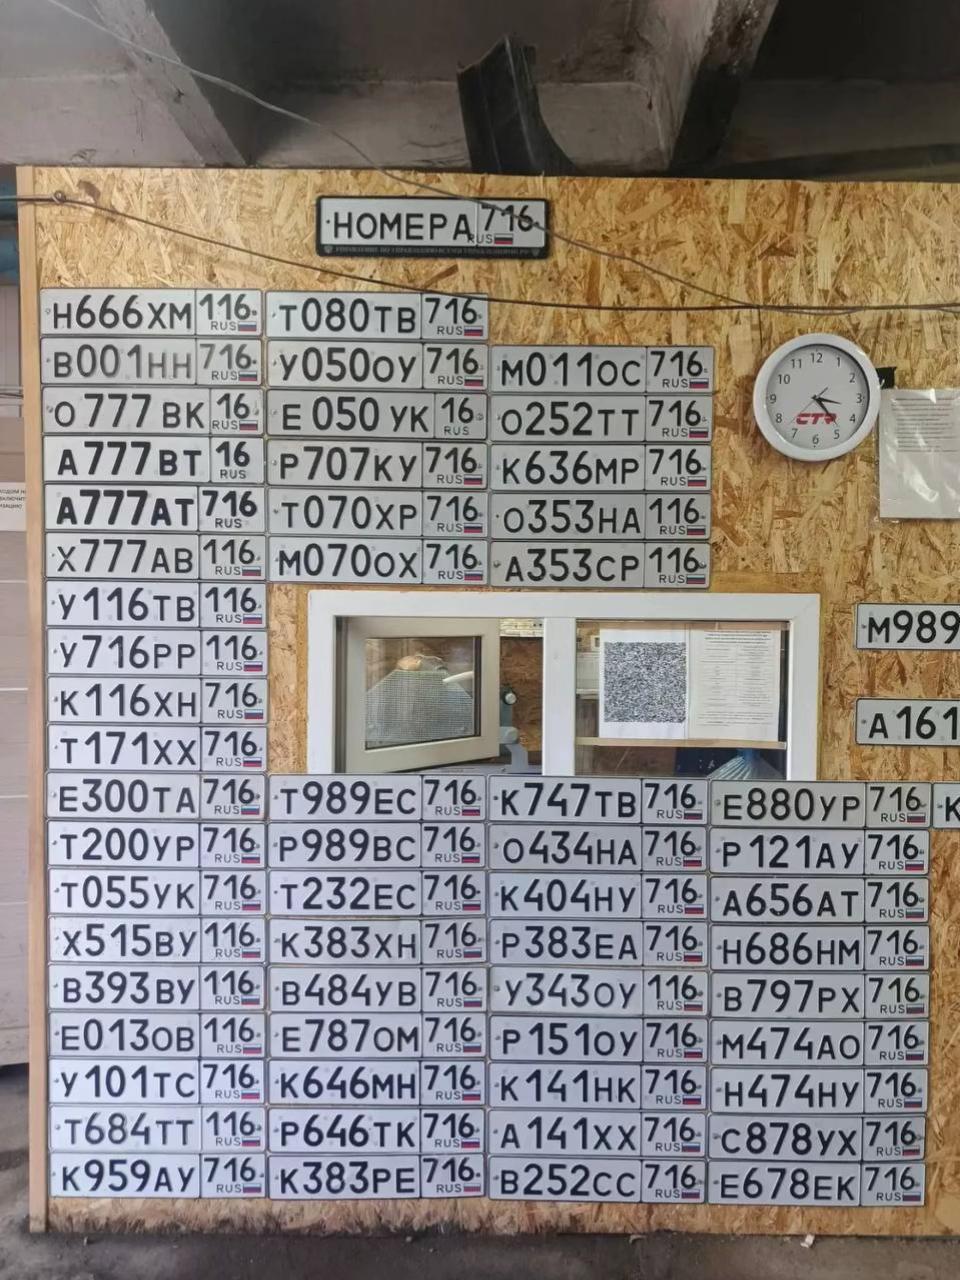 НОМЕРА 716 RUS
Н666ХМ 116 RUS
В001НН 716 RUS
О777ВК 16 RUS
А777ВТ 16 RUS
А777АТ 716 RUS
Х777АВ 116 RUS
У116ТВ 116 RUS
У716РР 116 RUS
К116ХН 716 RUS
Т171ХХ 716 RUS
Е300ТА 716 RUS
Т200УР 716 RUS
Т055УК 716 RUS
Х515ВУ 116 RUS
В393ВУ 116 RUS
Е013ОВ 116 RUS
У101ТС 716 RUS
Т684ТТ 116 RUS
К959АУ 716 RUS
Т080ТВ 716 RUS
У050ОУ 716 RUS
Е050УК 16 RUS
Р707КУ 716 RUS
Т070ХР 716 RUS
М070ОХ 716 RUS
Т989ЕС 716 RUS
Р989ВС 716 RUS
Т232ЕС 716 RUS
К383ХН 716 RUS
В484УВ 716 RUS
Е787ОМ 716 RUS
К646МН 716 RUS
Р646ТК 716 RUS
К383РЕ 716 RUS
М011ОС 716 RUS
О252ТТ 716 RUS
К636МР 716 RUS
О353НА 116 RUS
А353СР 116 RUS
К747ТВ 716 RUS
О434НА 716 RUS
К404НУ 716 RUS
Р383ЕА 716 RUS
У343ОУ 116 RUS
Р151ОУ 716 RUS
К141НК 716 RUS
А141ХХ 716 RUS
В252СС 716 RUS
Е880УР 716 RUS
Р121АУ 716 RUS
А656АТ 716 RUS
Н686НМ 716 RUS
В797РХ 716 RUS
М474АО 716 RUS
Н474НУ 716 RUS
С878УХ 716 RUS
Е678ЕК 716 RUS
12
11 1
10 2
9 3
8 4
7 5
6
СТР
М989
А161
К